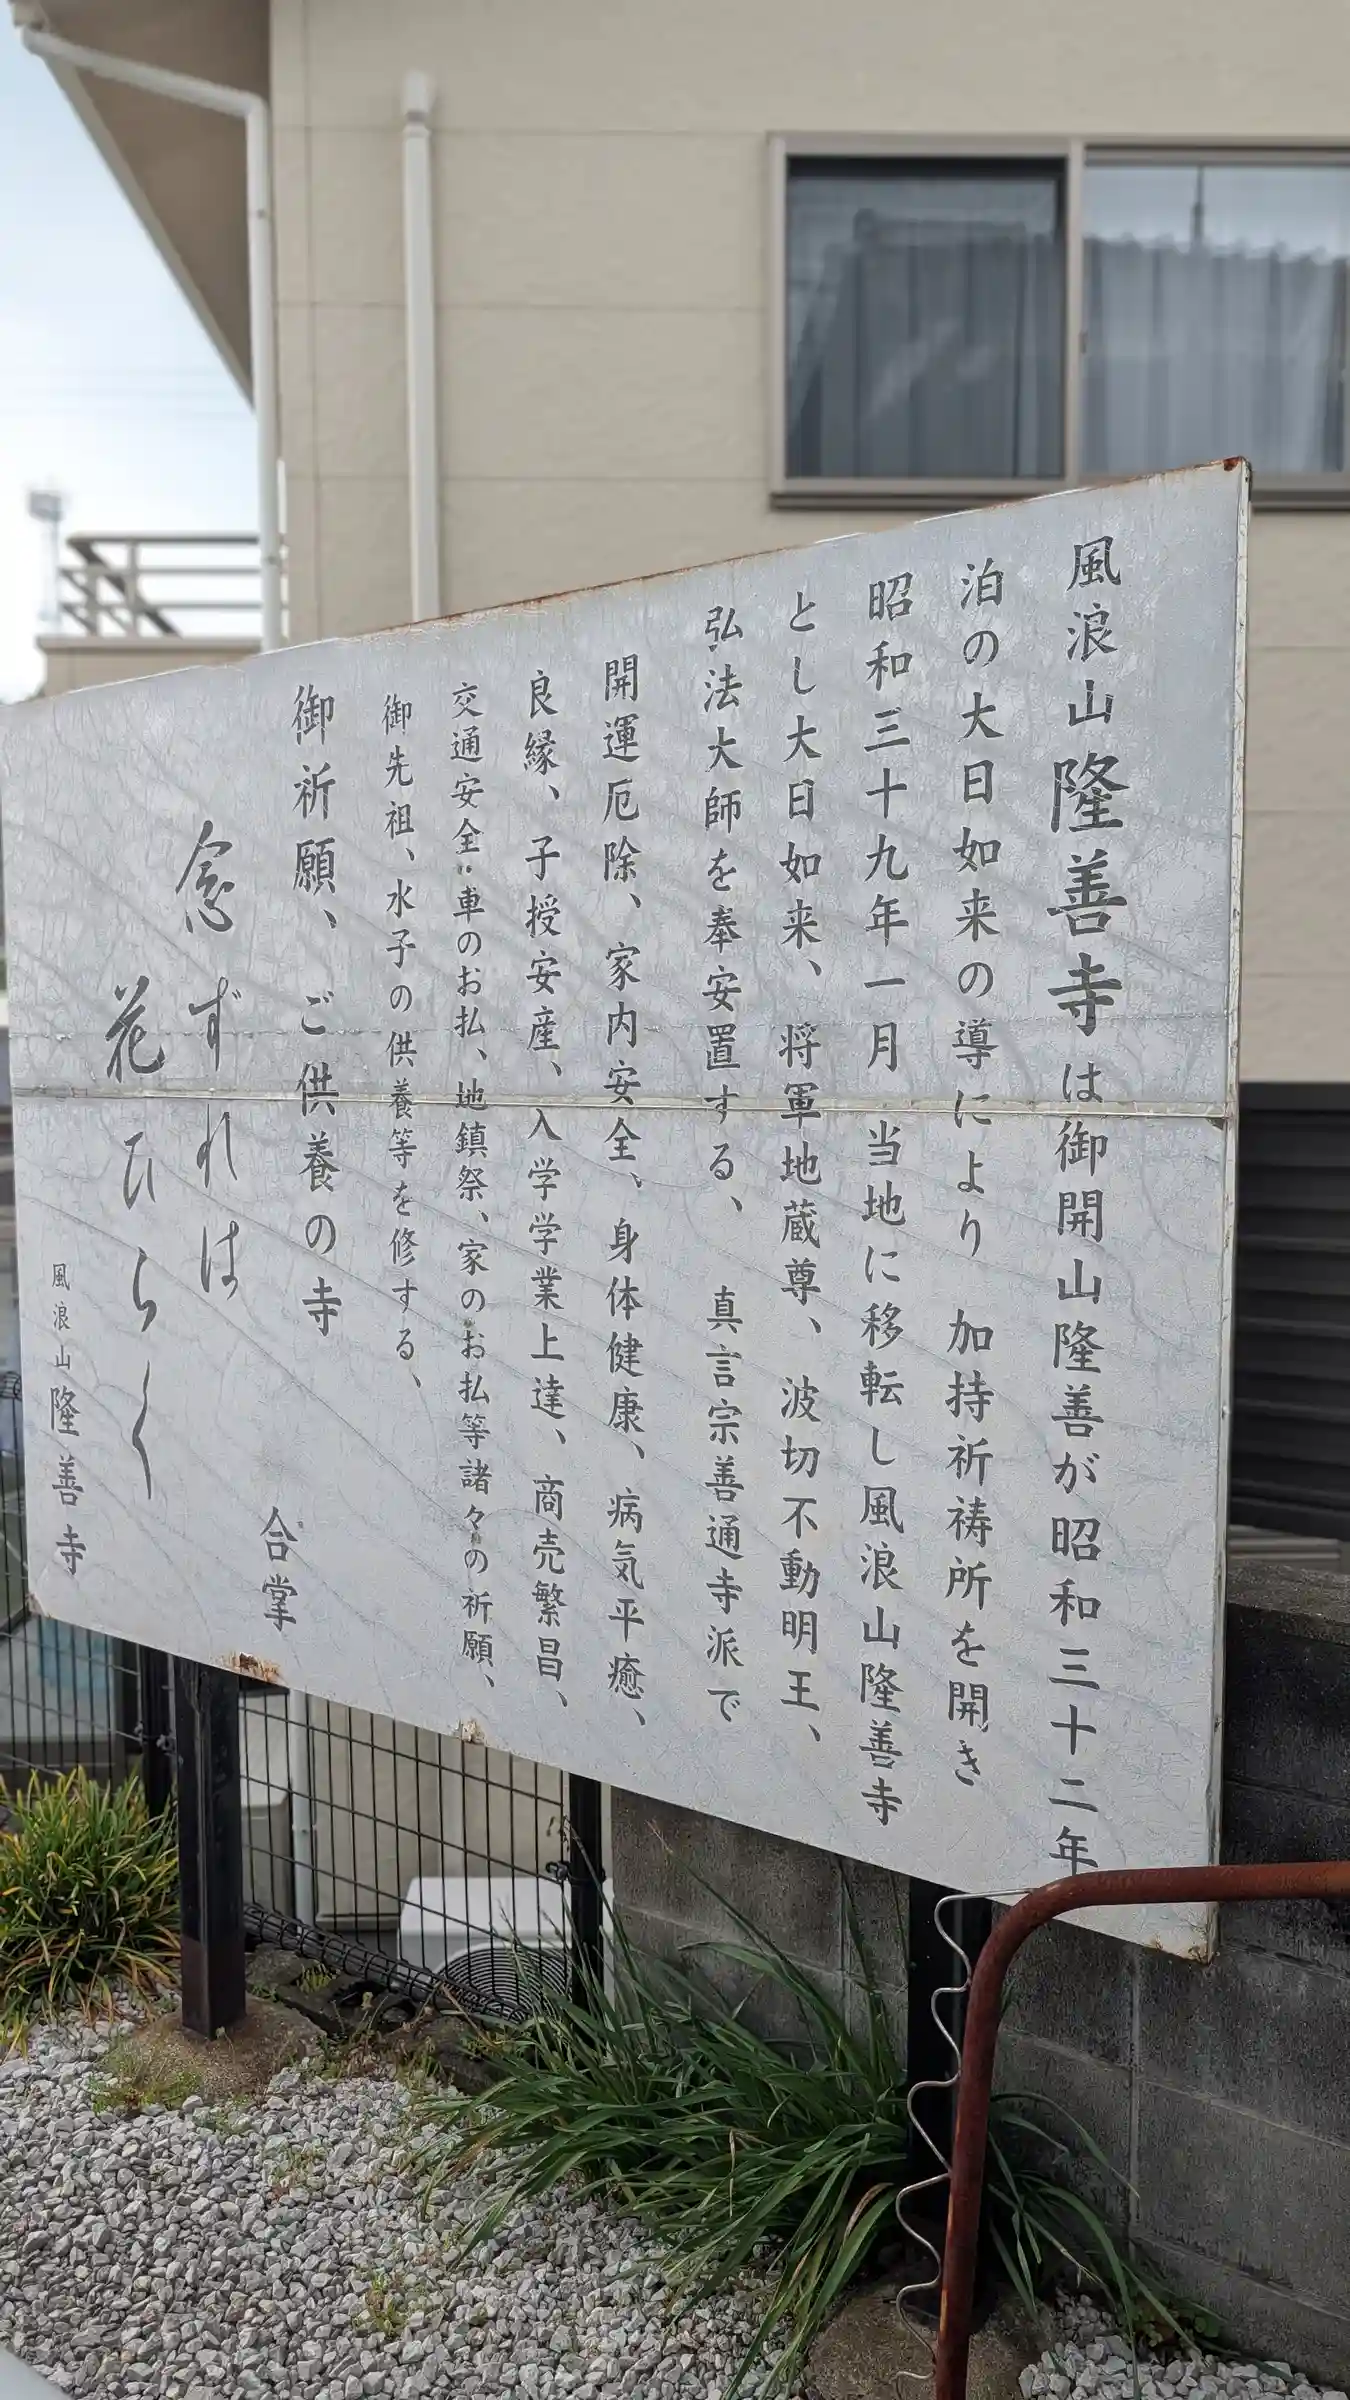 風浪山隆善寺は御開山隆善が昭和三十二年
泊の大日如来の導により 加持祈祷所を開き
昭和三十九年一月 当地に移転し風浪山隆善寺
とし大日如来、将軍地蔵尊、波切不動明王、
弘法大師を奉安置する、 真言宗善通寺派で
開運厄除、家内安全、身体健康、病気平癒、
良縁、子授安産、入学学業上達、商売繁昌、
交通安全〃車のお払、地鎮祭、家のお払等諸々の祈願、
御先祖、水子の供養等を修する、
御祈願、ご供養の寺
合掌
念ずれは
花ひら〱
風浪山隆善寺